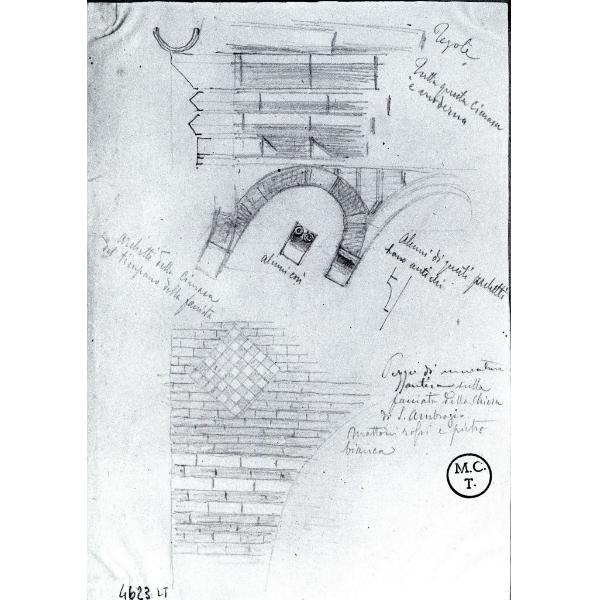 Tegole
Tutta questa Cimasa
è moderna
Archetti della Cimasa
del timpano della facciata
Alcuni così
Alcuni di questi archetti
sono antichi
Pezzo di muratura
antica sulla
facciata della Chiesa
di S. Ambrogio
Mattoni rossi e pietre
bianca
M.C.
T.
4623 LT